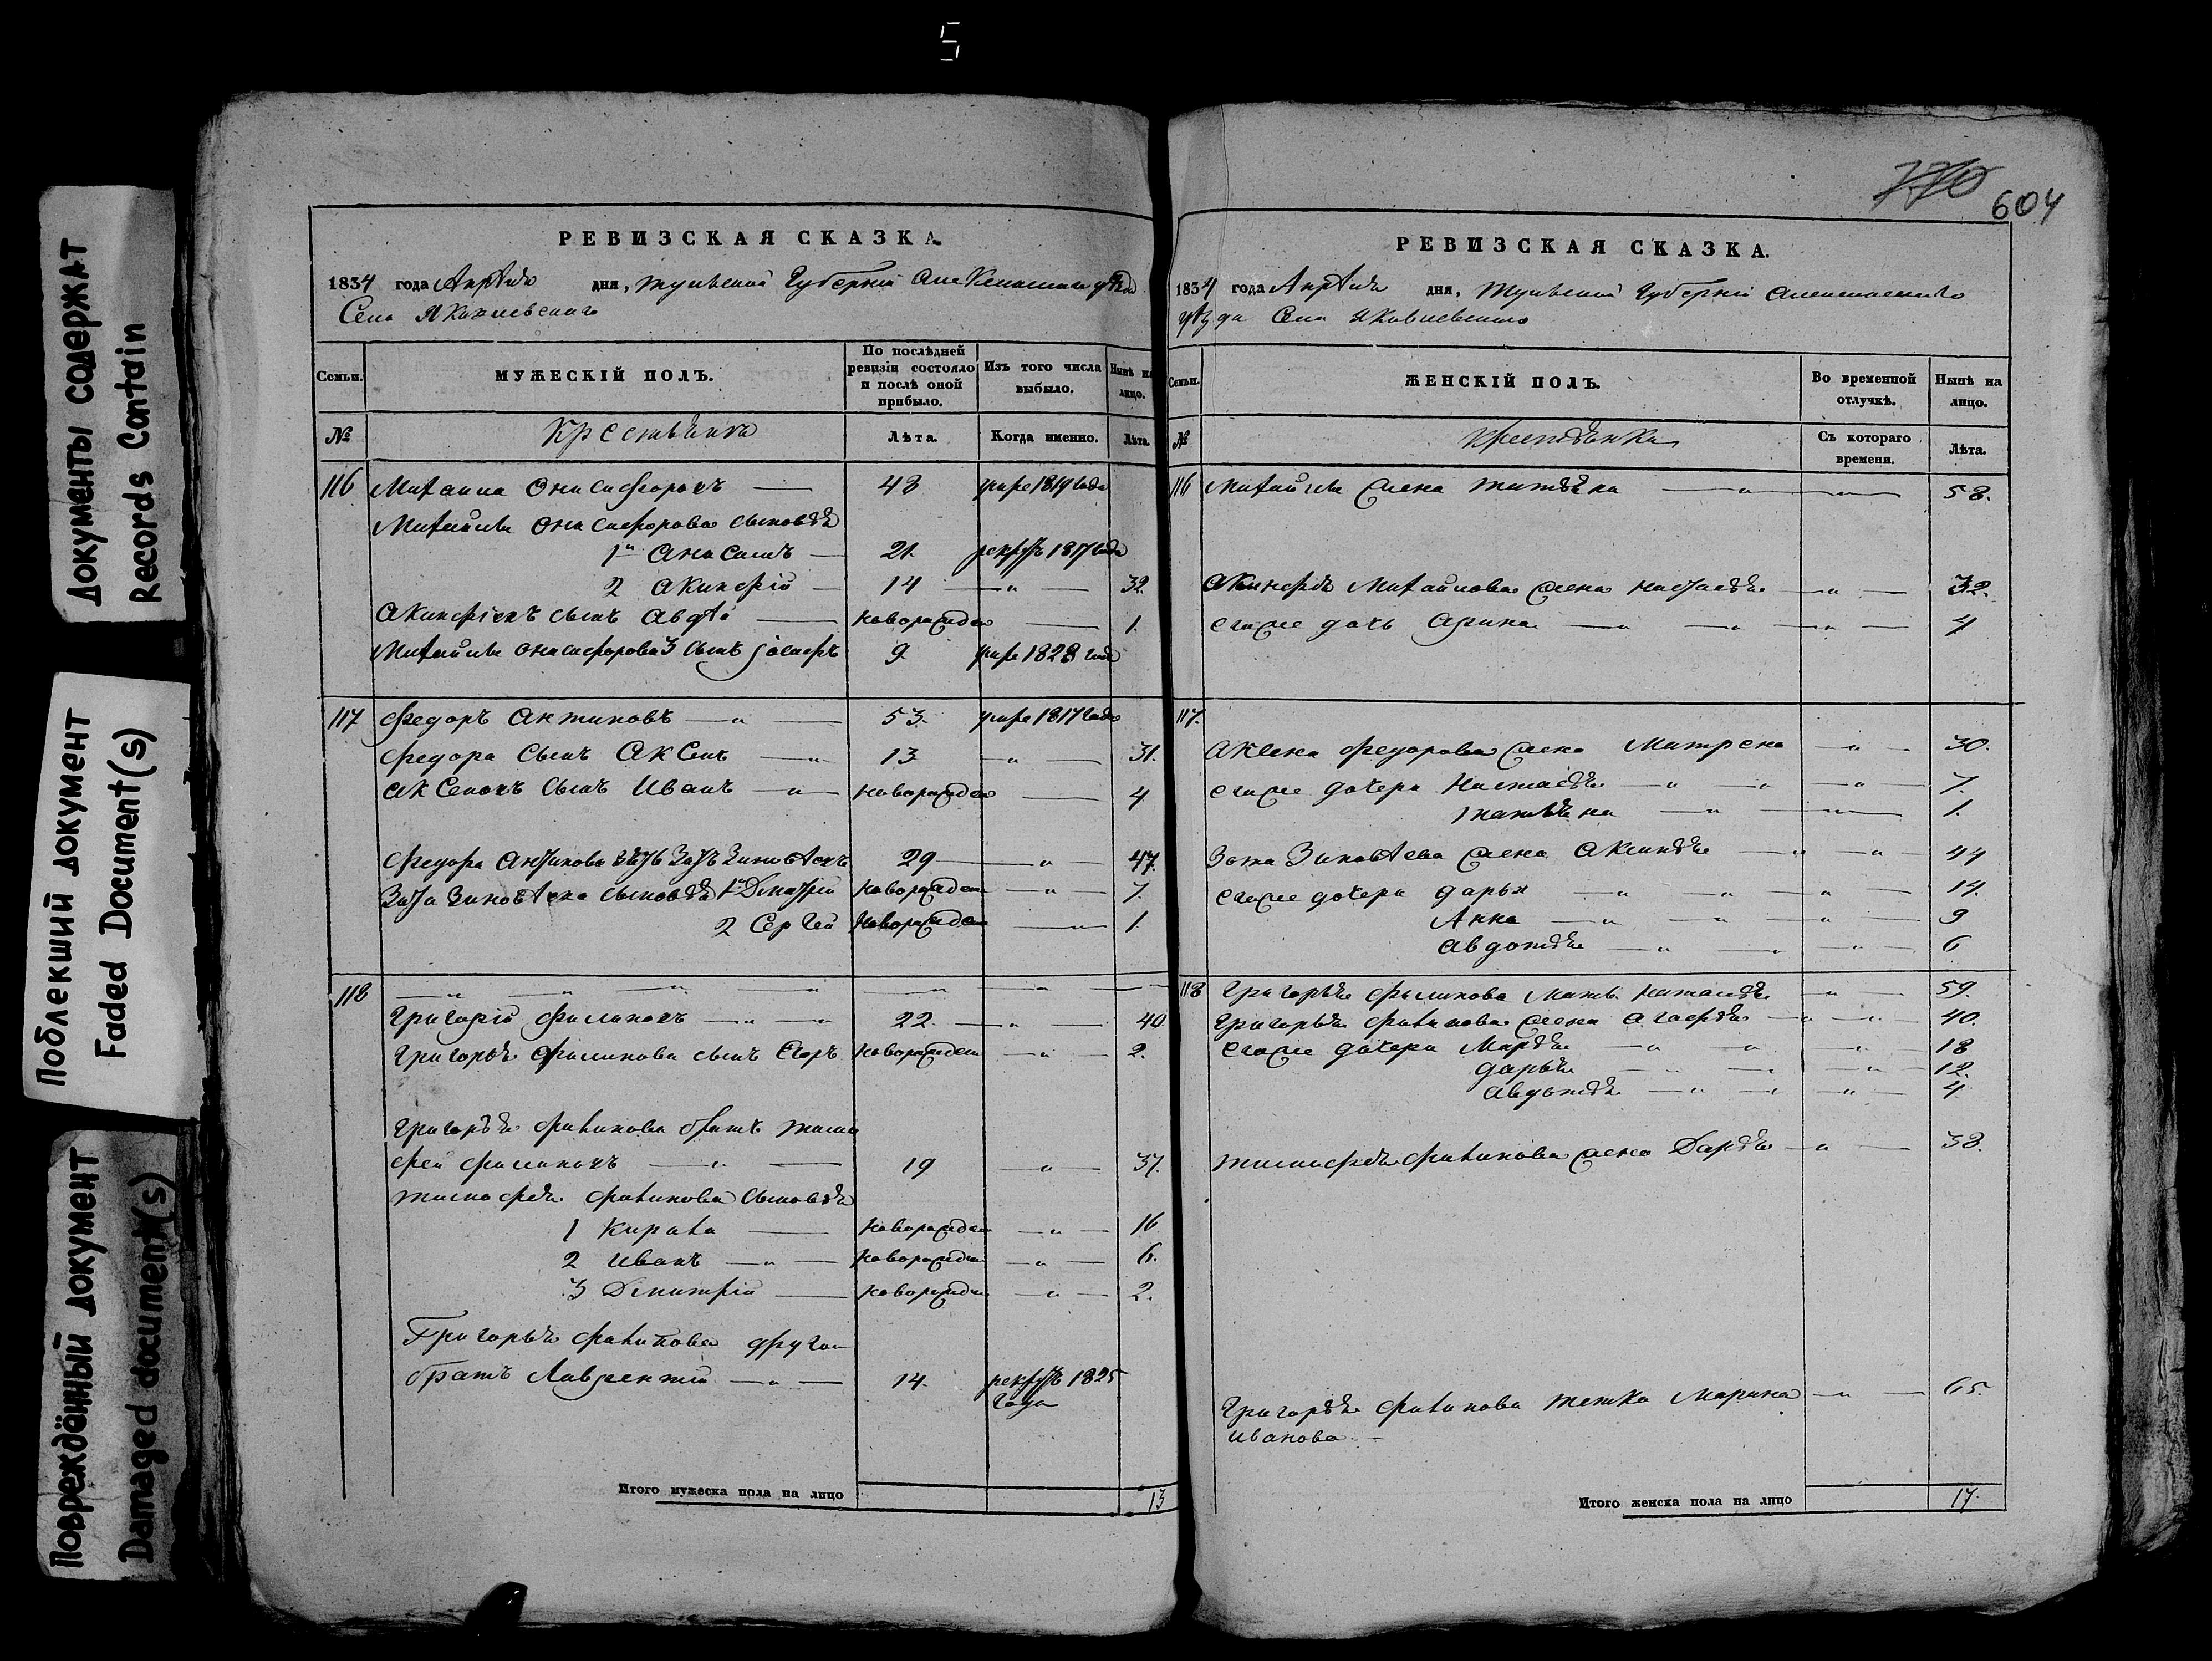 5
Документы содержат
Records Contain
Поблекший документ
Faded Document(s)
Повреждённый документ
Damaged document(s)
РЕВИЗСКАЯ СКАЗКА
1834 года Апрѣля дня, Тульской Губерніи Алексинскаго уѣзда
Села Яковлевскаго
Семьи.
МУЖЕСКІЙ ПОЛЪ.
По послѣдней ревизіи состояло и послѣ оной прибыло.
Изъ того числа выбыло.
Нынѣ на лицо.
№
Крестьяня
Лѣта.
Когда именно.
Лѣта.
116 Михаила Онисифоровъ 48 умре 1819 года
Михайлы Онисифорова сыновья
1й Анисимъ 21. рекрутъ 1817 года
2 Акинфій 14 " 32.
Акинфіевъ сынъ Авдѣй новорожден 1.
Михайлы Онисифорова 3 сынъ Іосифъ 9 умре 1828 года
117 Федоръ Антиповъ " 53. умре 1817 года
Федора сынъ Аксенъ " 13 " 31.
Аксеновъ сынъ Иванъ " новорожден 4
Федора Антипова зять Зотъ Зиновѣевъ 29 " 47.
Зота Зиновѣева сыновья 1й Дмитрій новорожден " 7.
2 Сергѣй новорожден " 1.
118 " " " " " " "
Григорій Филиповъ " " 22. " 40.
Григорья Филипова сынъ Егоръ новорожден " 2.
Григорья Филипова братъ Тимо
фей Филиповъ " 19 " 37.
Тимофея Филипова сыновья
1 Кирила новорожден " 16
2 Иванъ " новорожден " 6.
3 Дмитрій новорожден " 2.
Григорья Филипова другой
братъ Лаврентій " 14. рекрутъ 1825
года
Итого мужеска пола на лицо 13
770 604
РЕВИЗСКАЯ СКАЗКА.
1834 года Апрѣля дня, Тульской Губерніи Алексинскаго
уѣзда Села Яковлевскаго
Семьи.
ЖЕНСКІЙ ПОЛЪ.
Во временной отлучкѣ.
Нынѣ на лицо.
№
Крестьянки
Съ котораго времени.
Лѣта.
116 Михайлы жена Татьяна " 58.
Акинфья Михайлова жена Настасья " 32.
егоже дочь Арина " " " 4
117.
Аксена Федорова жена Матрена " 30.
егоже дочери Настасья " " " 7.
Татьяна " 1.
Зота Зиновѣева жена Аксинья " " 44
егоже дочери Дарья " " " 14.
Анна " " " 9
Авдотья " " 6
118 Григорья Филипова мать Наталья " 59.
Григорья Филипова жена Агафья " " 40.
егоже дочери Марья " " " 18
Дарья " " 12.
Авдотья " " " 4
Тимофея Филипова жена Дарья " 38.
Григорья Филипова тетка Марина " 65.
Иванова
Итого женска пола на лицо 17.